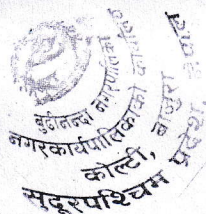 बुढीनन्दा नगरपालिका
नगरकार्यपालिकाको कार्यालय
कोल्टी, बाजुरा
सुदूरपश्चिम प्रदेश, नेपाल